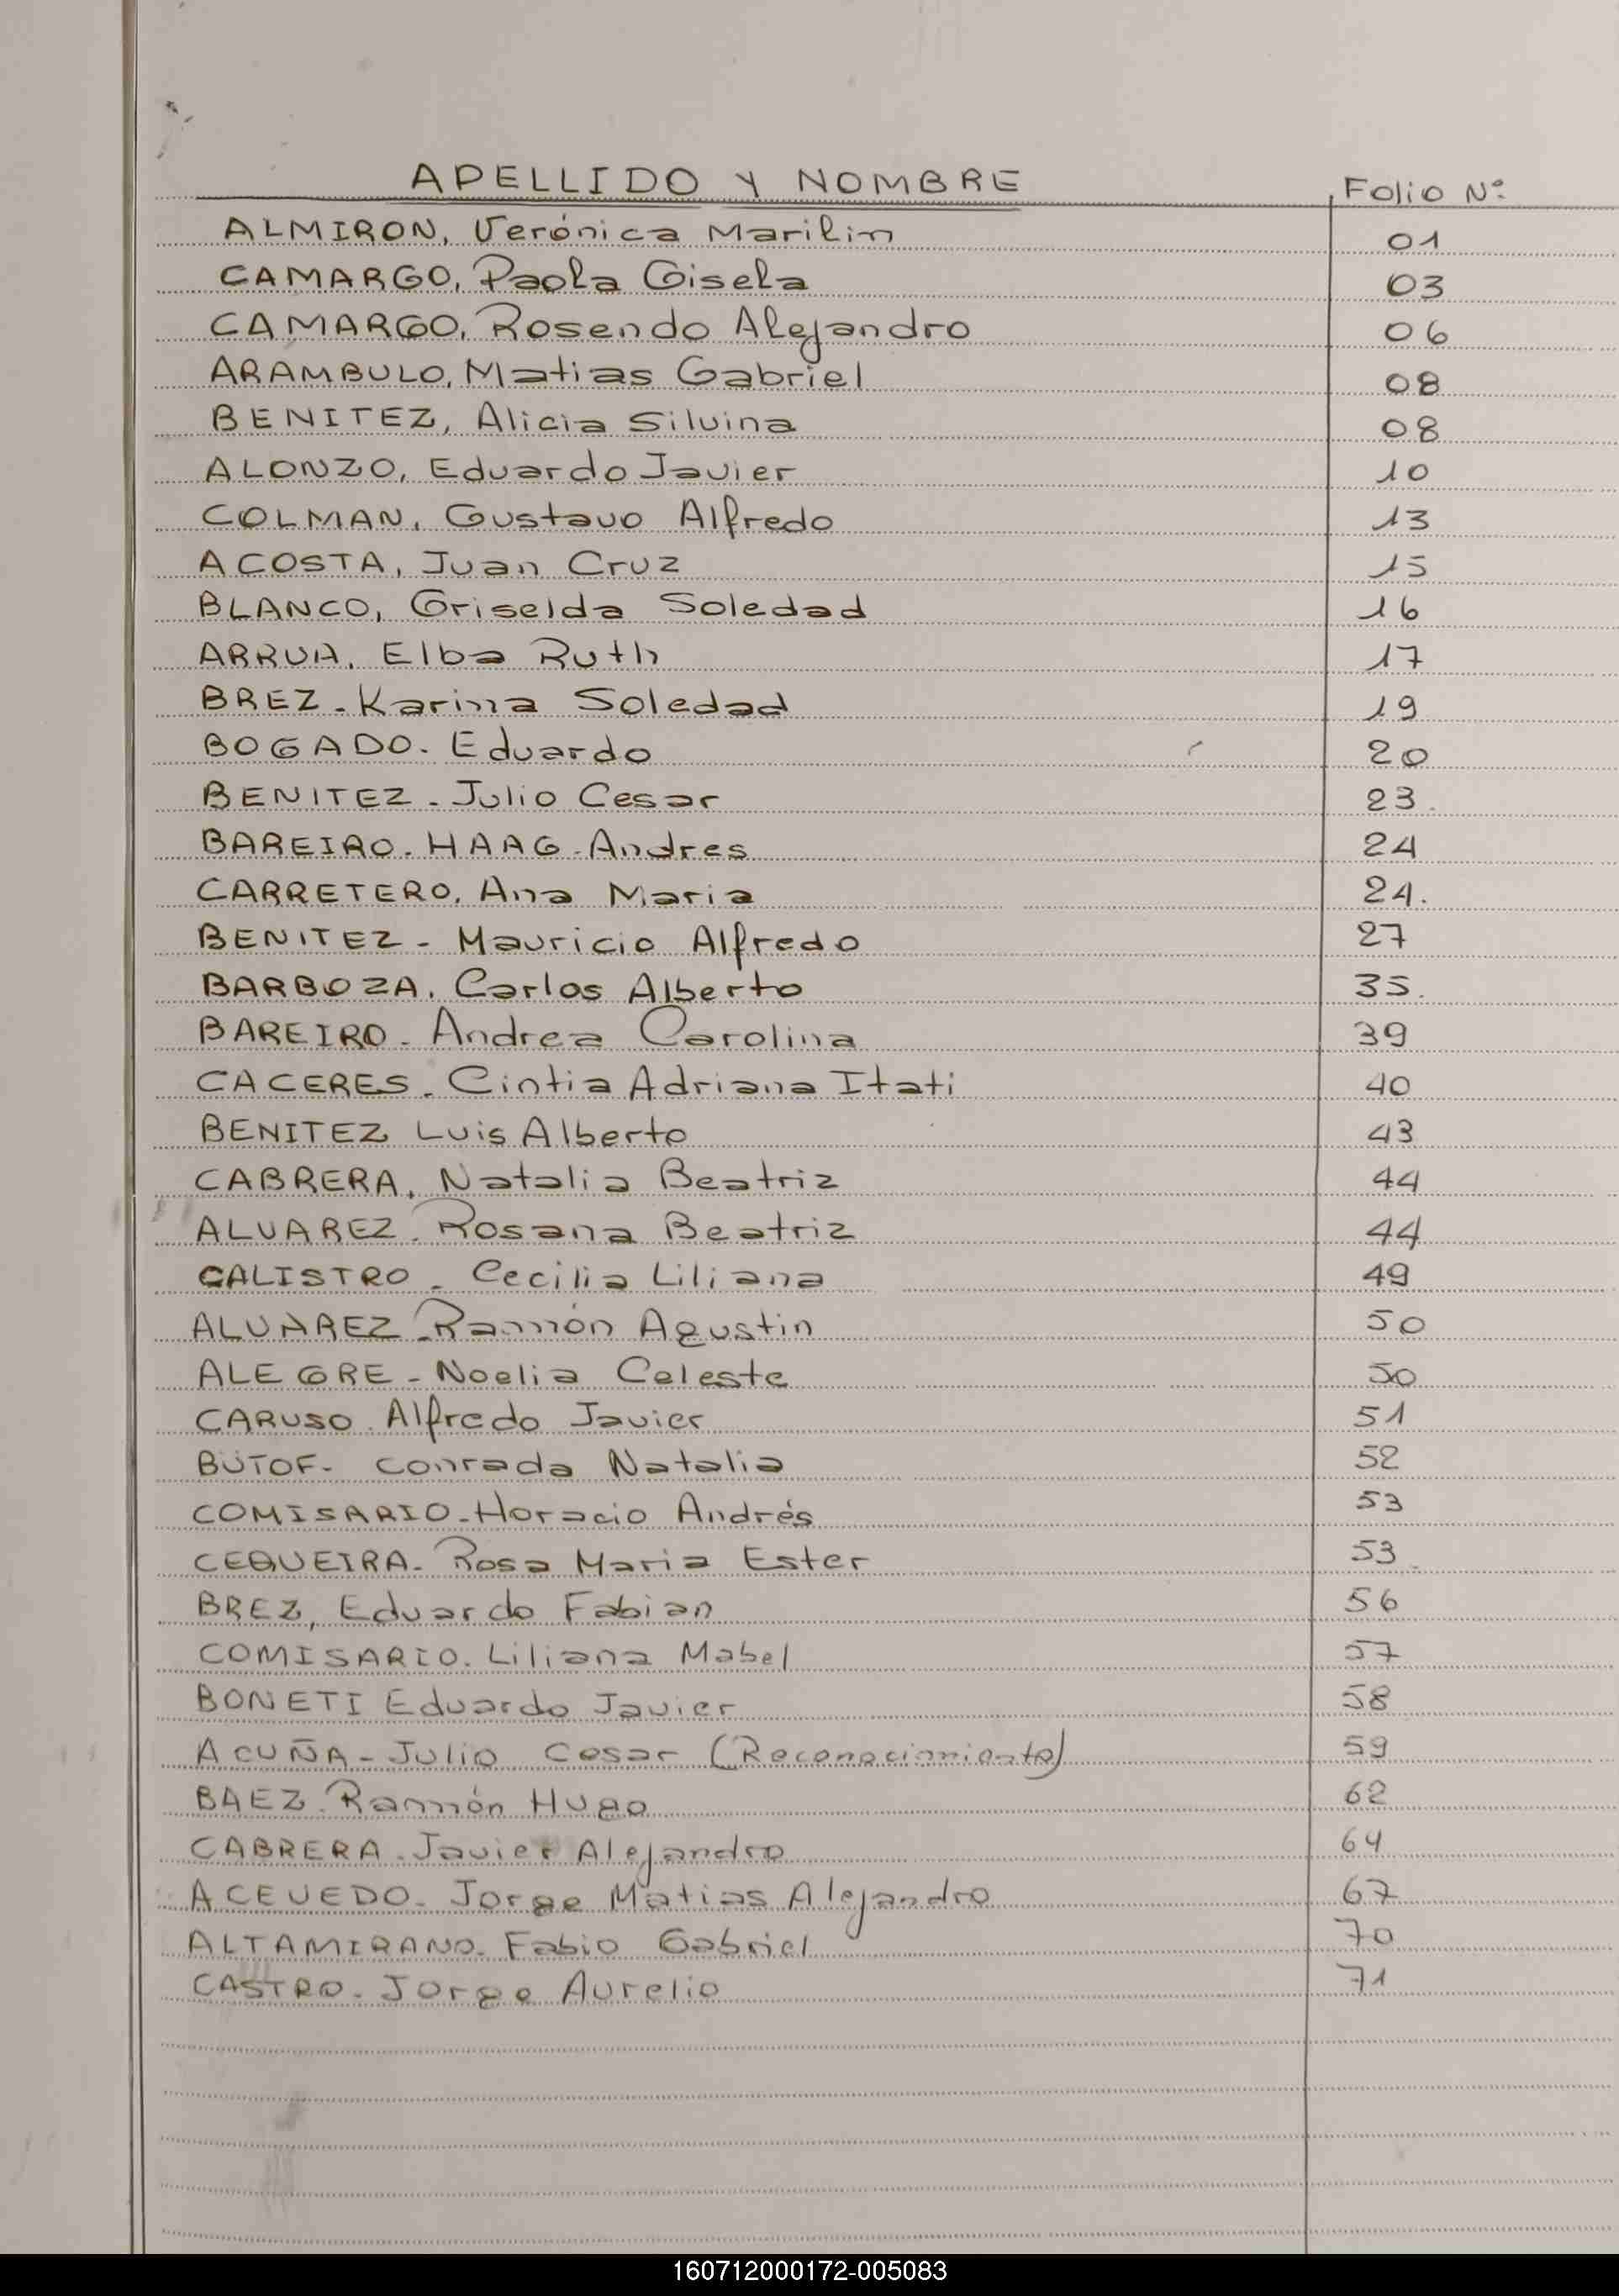 APELLIDO Y NOMBRE Folio Nº
ALMIRON, Verónica Marilin 01
CAMARGO, Paola Gisela 03
CAMARGO, Rosendo Alejandro 06
ARAMBULO, Matias Gabriel 08
BENITEZ, Alicia Silvina 08
ALONZO, Eduardo Javier 10
COLMAN, Gustavo Alfredo 13
ACOSTA, Juan Cruz 15
BLANCO, Griselda Soledad 16
ARRUA, Elba Ruth 17
BREZ - Karina Soledad 19
BOGADO. Eduardo 20
BENITEZ - Julio Cesar 23.
BAREIRO. HAAG - Andres 24
CARRETERO, Ana Maria 24.
BENITEZ - Mauricio Alfredo 27
BARBOZA, Carlos Alberto 35.
BAREIRO - Andrea Carolina 39
CACERES - Cintia Adriana Itati 40
BENITEZ Luis Alberto 43
CABRERA, Natalia Beatriz 44
ALVAREZ. Rosana Beatriz 44
CALISTRO - Cecilia Liliana 49
ALVAREZ - Ramón Agustin 50
ALEGRE - Noelia Celeste 50
CARUSO. Alfredo Javier 51
BUTOF - Conrada Natalia 52
COMISARIO - Horacio Andrés 53
CEQUEIRA - Rosa Maria Ester 53.
BREZ, Eduardo Fabian 56
COMISARIO. Liliana Mabel 57
BONETI Eduardo Javier 58
ACUÑA - Julio Cesar (Reconocimiento) 59
BAEZ. Ramón Hugo 62
CABRERA. Javier Alejandro 64
ACEVEDO - Jorge Matias Alejandro 67
ALTAMIRANO. Fabio Gabriel 70
CASTRO - Jorge Aurelio 71
160712000172-005083